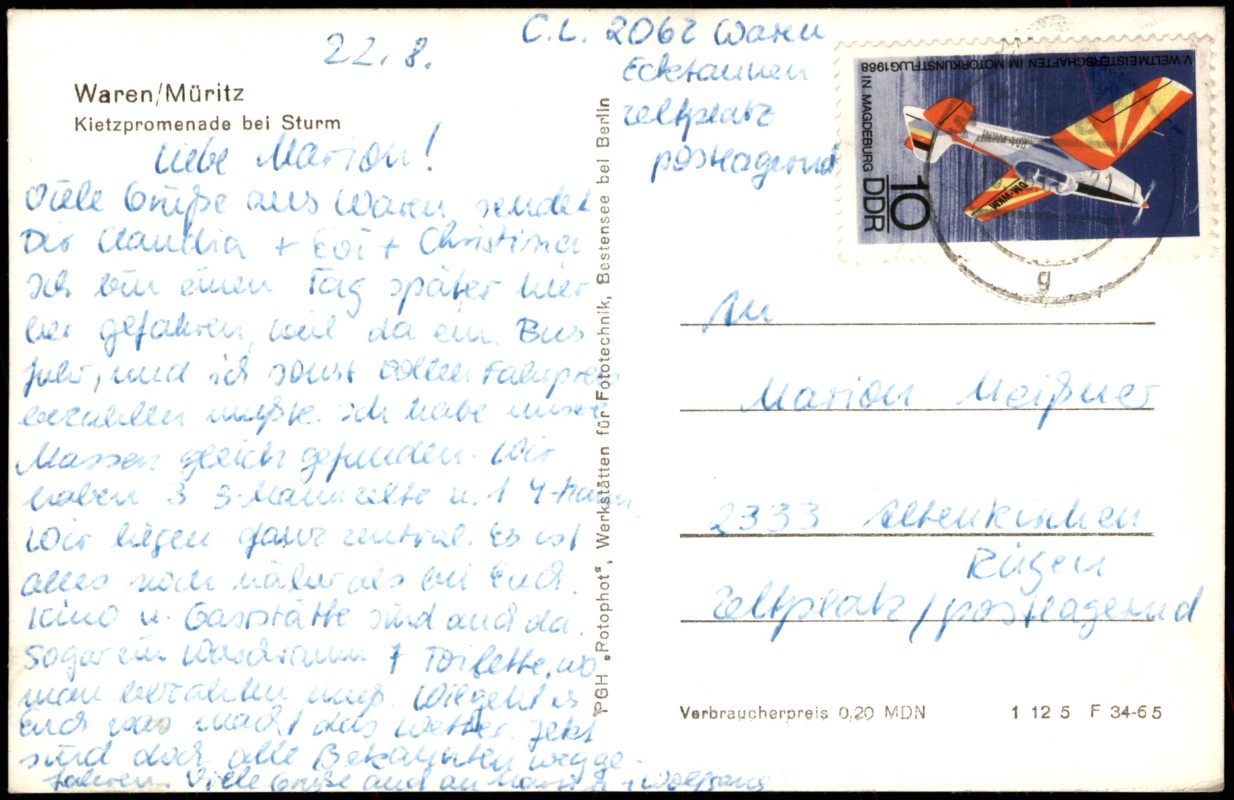 22.8.
Waren/Müritz
Kietzpromenade bei Sturm
Liebe Marion!
Viele Grüße aus Waren sendet
Dir Claudia + Evi + Christina
Ich bin einen Tag später hier
her gefahren, weil da ein Bus
fuhr, und ich sonst vollen Fahrpreis
bezahlen mußte. Ich habe unsere
Massen gleich gefunden. Wir
haben 3 3-Mannzelte u. 1 4-Mann
Wir liegen ganz zentral. Es ist
alles noch näher als bei Euch.
Kino u. Gaststätte sind auch da.
Sogar ein Waschraum + Toilette, wo
man bezahlen muß. Wie geht es
Euch was macht das Wetter. Jetzt
sind doch alle Bekannten wegge-
fahren. Viele Grüße auch an + Wolfgang
PGH „Rotophot", Werkstätten für Fototechnik, Bestensee bei Berlin
C.L. 2062 Waren
Ecktannen
Zeltplatz
postlagernd
V. WELTMEISTERSCHAFTEN IM MOTORKUNSTFLUG 1968
IN MAGDEBURG
10
DDR
DM-WKM
g
An
Marion Meißner
2333 Altenkirchen
Rügen
Zeltplatz / postlagernd
Verbraucherpreis 0,20 MDN
1 12 5 F 34-65